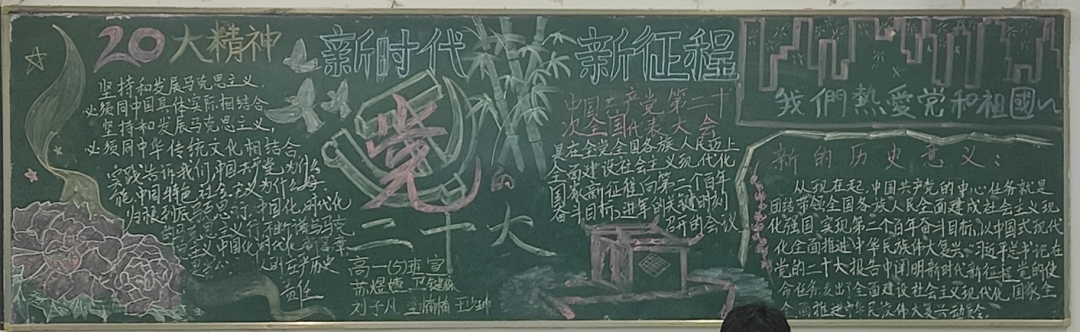 20大精神
坚持和发展马克思主义，
必须同中国具体实际相结合
坚持和发展马克思主义，
必须同中华传统文化相结合
实践告诉我们,中国共产党为什么
能,中国特色社会主义为什么
归根到底
中国化 时代化
责任
新时代 新征程
党的
二十大
高一(5)班宣
刘子凡
中国共产党第二十
次全国代表大会
是在全党全国各族人民迈上
全面建设社会主义现代化
国家新征程向第二个百年
奋斗目标进军的关键时刻
召开的会议
我們熱愛党和祖國
新的历史意义：
从现在起,中国共产党的中心任务就是
团结带领全国各族人民全面建成社会主义现
代化强国 实现第二个百年奋斗目标,以中国式现代
化全面推进中华民族伟大复兴。习近平总书记在
党的二十大报告中阐明新时代新征程党的使
命任务,发出了全面建设社会主义现代化国家全
面推进中华民族伟大复兴动员令。